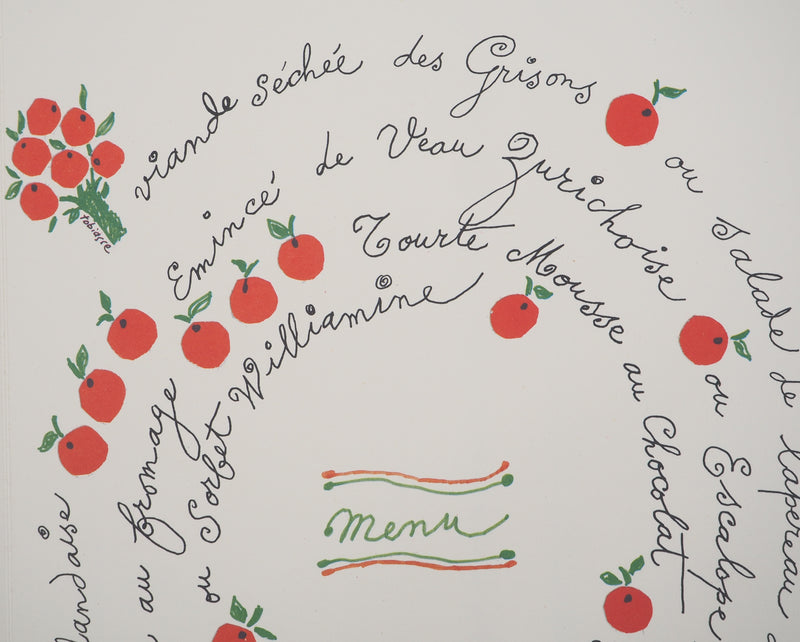 viande séchée des Grisons
ou salade de lapereau
landaise
Emincé de Veau Zurichoise
ou Escalope
au fromage
Tourte Mousse au Chocolat
ou Sorbet Williamine
Menu
tobiasse